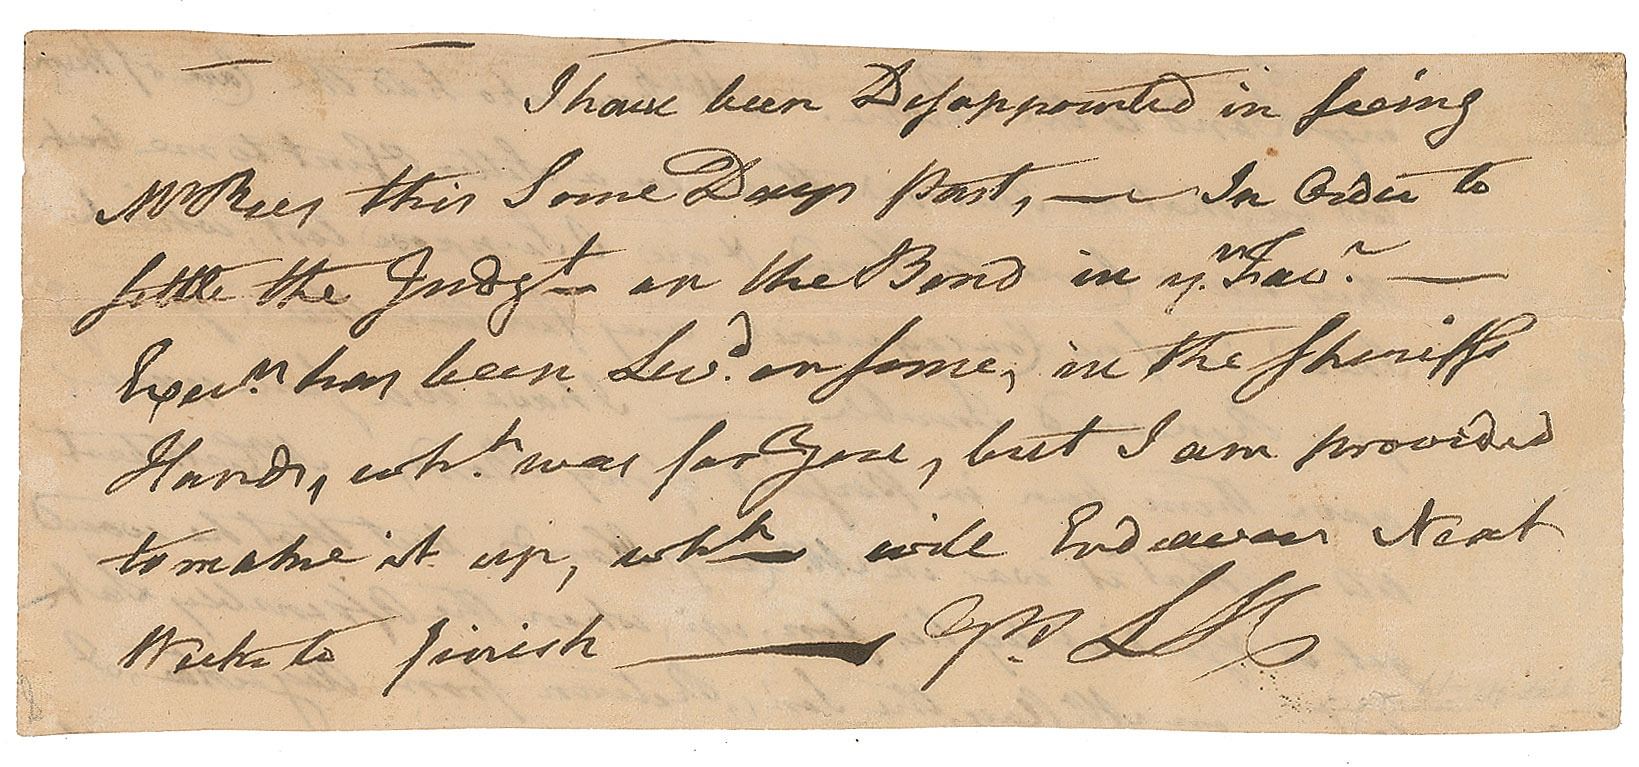 I have been Disappointed in seeing
Mr Rees this Some Days past, — In Order to
settle the Judgt on the Bond in yr Favr —
Exeun has been Levd on some, in the Sheriffs
Hands, whh was for you, but I am provided
to make it up, whh will Endeavour Next
Week to finish — Yrs LH